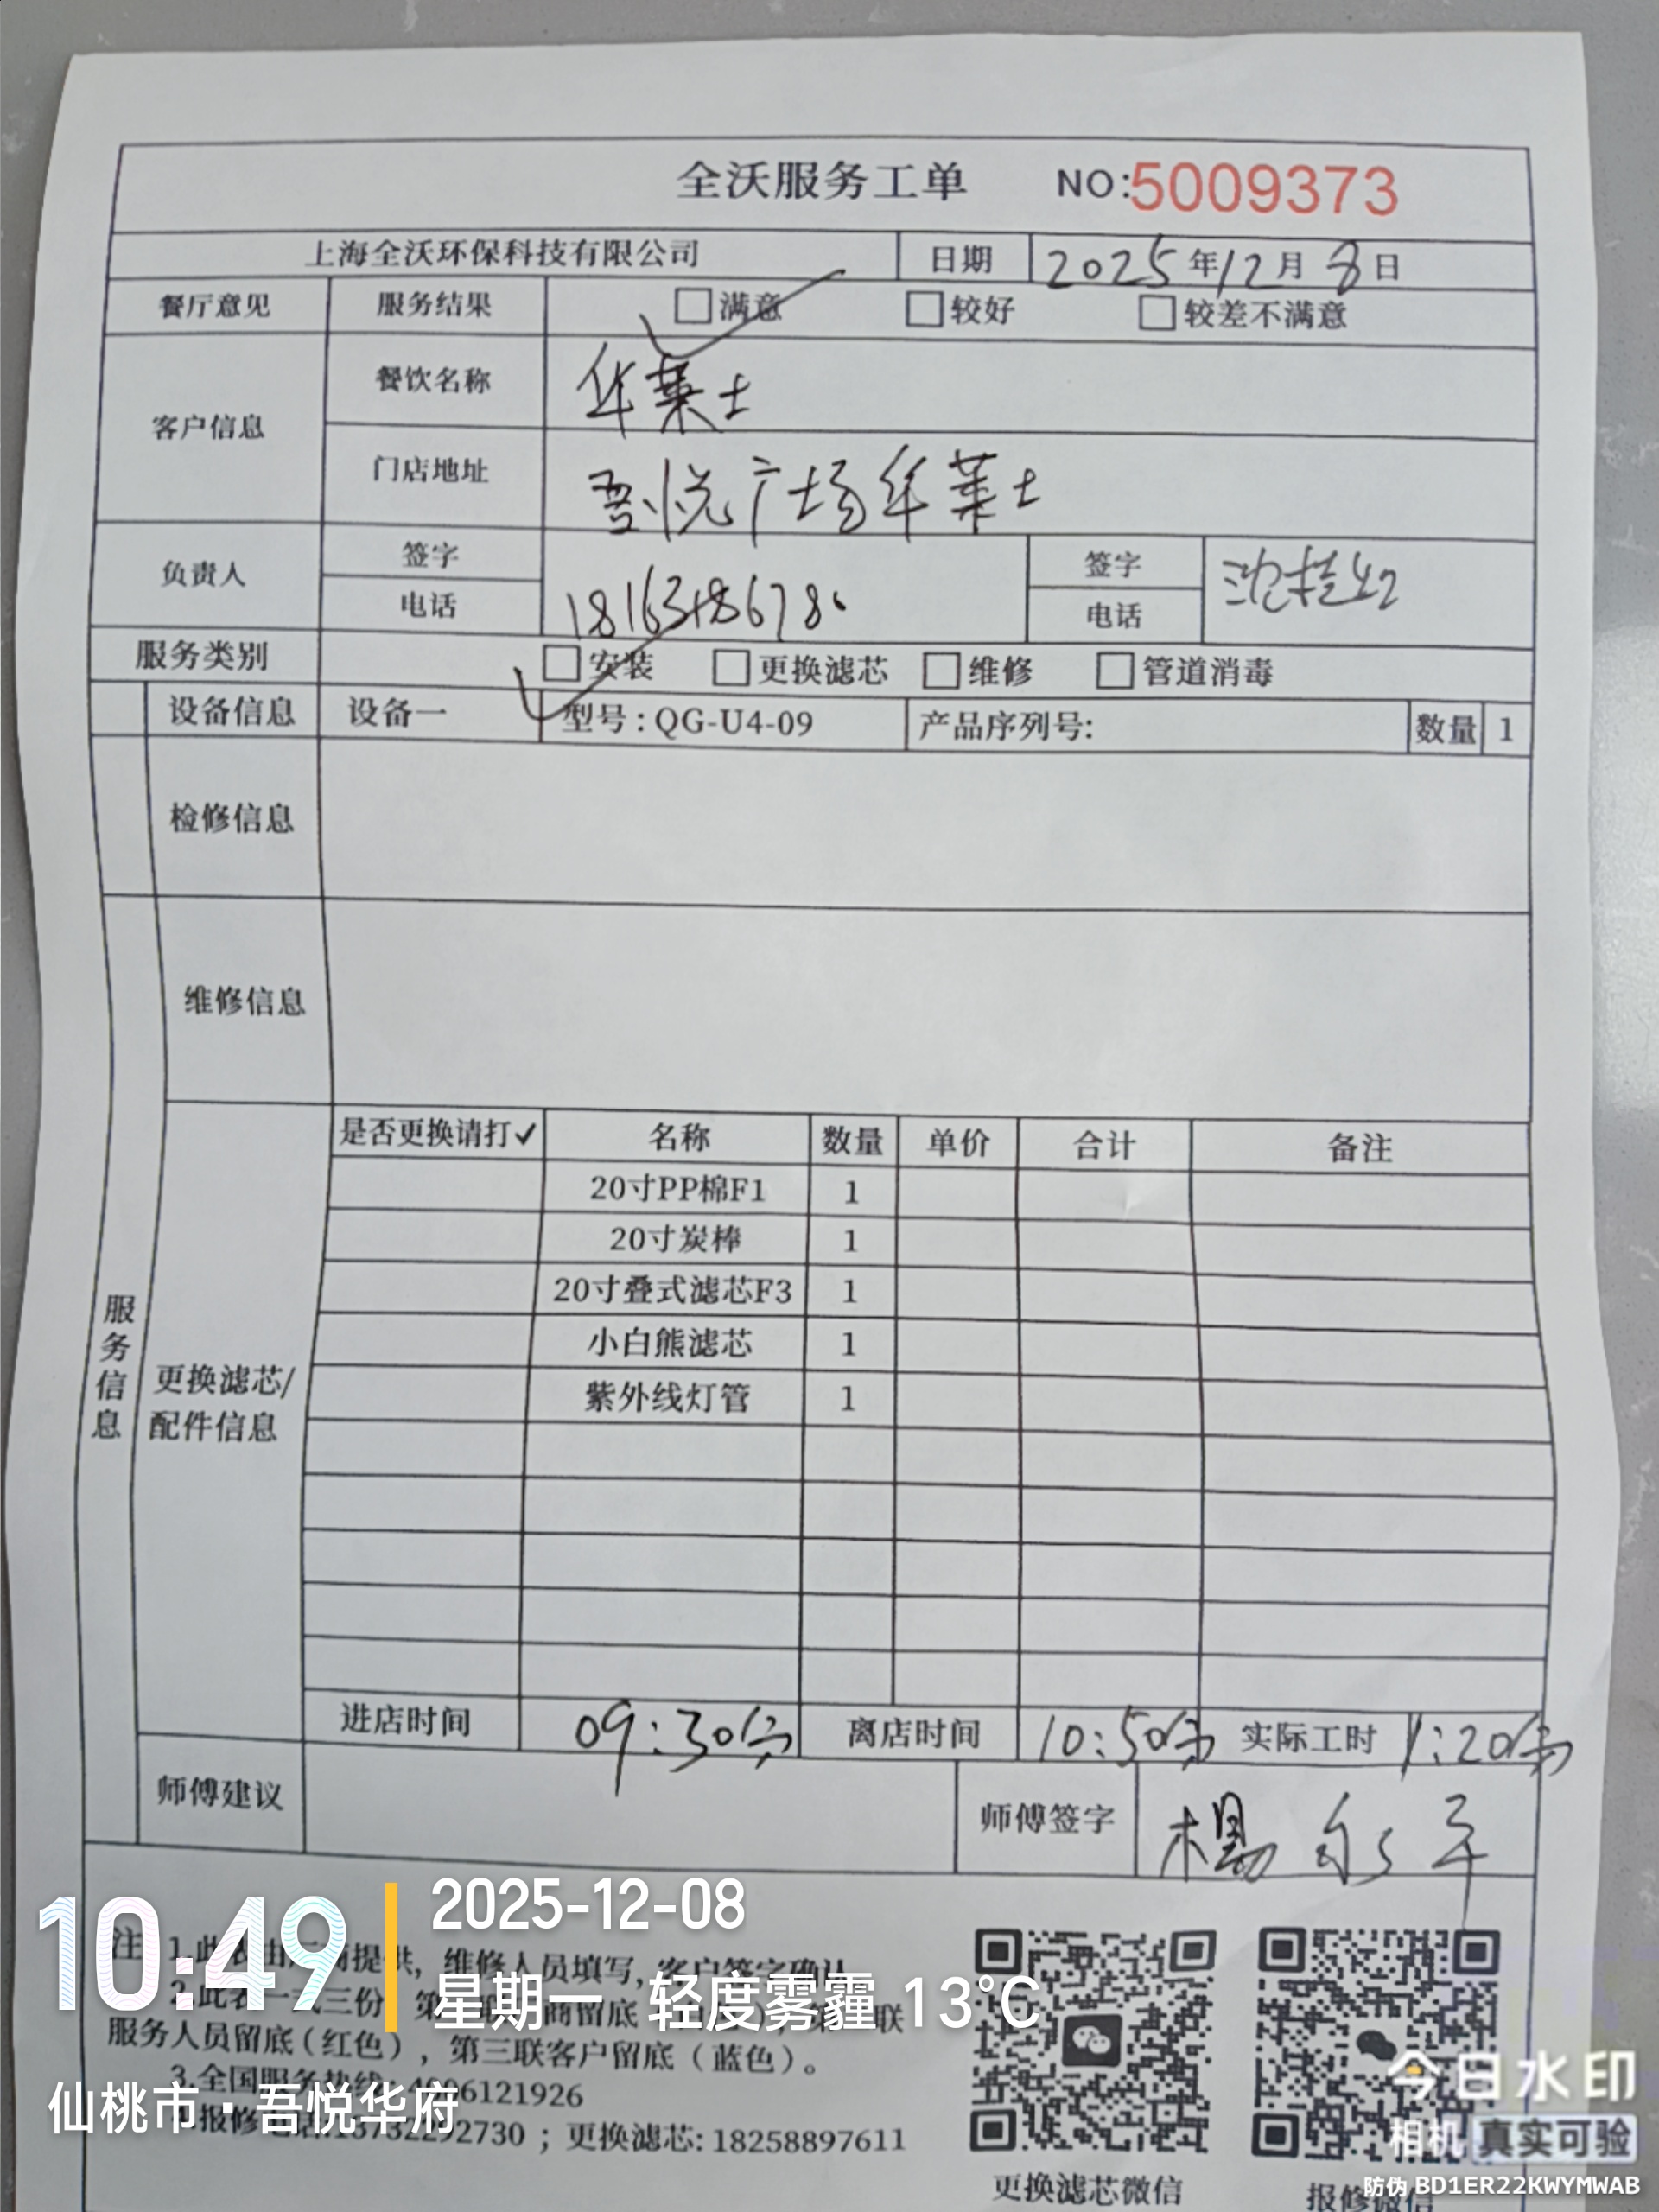 全沃服务工单 NO:5009373
上海全沃环保科技有限公司 日期 2025年12月8日
餐厅意见 服务结果 ☐满意 ☐较好 ☐较差不满意
客户信息 餐饮名称 华莱士
门店地址 吾悦广场华莱士
负责人 签字 签字
电话 电话
服务类别 ☐安装 ☐更换滤芯 ☐维修 ☐管道消毒
设备信息 设备一 型号:QG-U4-09 产品序列号: 数量 1
检修信息
维修信息
服务信息
更换滤芯/
配件信息
是否更换请打✓ 名称 数量 单价 合计 备注
20寸PP棉F1 1
20寸炭棒 1
20寸叠式滤芯F3 1
小白熊滤芯 1
紫外线灯管 1
进店时间 09:30分 离店时间 10:50分 实际工时 1:20分
师傅建议 师傅签字 杨永平
注 1.此表由 提供，维修人员填写，客户签字确认
2.此表一式三份 第 商留底
服务人员留底（红色），第三联客户留底（蓝色）。
3.全国服务热线: 4006121926
报修电话:13732292730；更换滤芯: 18258897611
更换滤芯微信
报修微信
10:49
2025-12-08
星期一 轻度雾霾 13°C
仙桃市·吾悦华府
今日水印
相机 真实可验
防伪 BD1ER22KWYMWAB